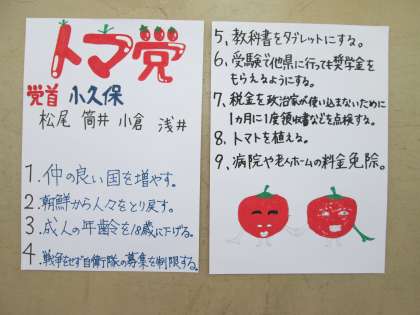 トマ党
党首 小久保
松尾 筒井 小倉 浅井
1.仲の良い国を増やす。
2.朝鮮から人々をとり戻す。
3.成人の年齢を18歳に下げる。
4.戦争をせず自衛隊の募集を制限する。
5、教科書をタブレットにする。
6、受験で他県に行っても奨学金を
もらえるようにする。
7、税金を政治家が使い込まないために
1カ月に1度領収書などを点検する。
8、トマトを植える。
9、病院や老人ホームの料金免除。